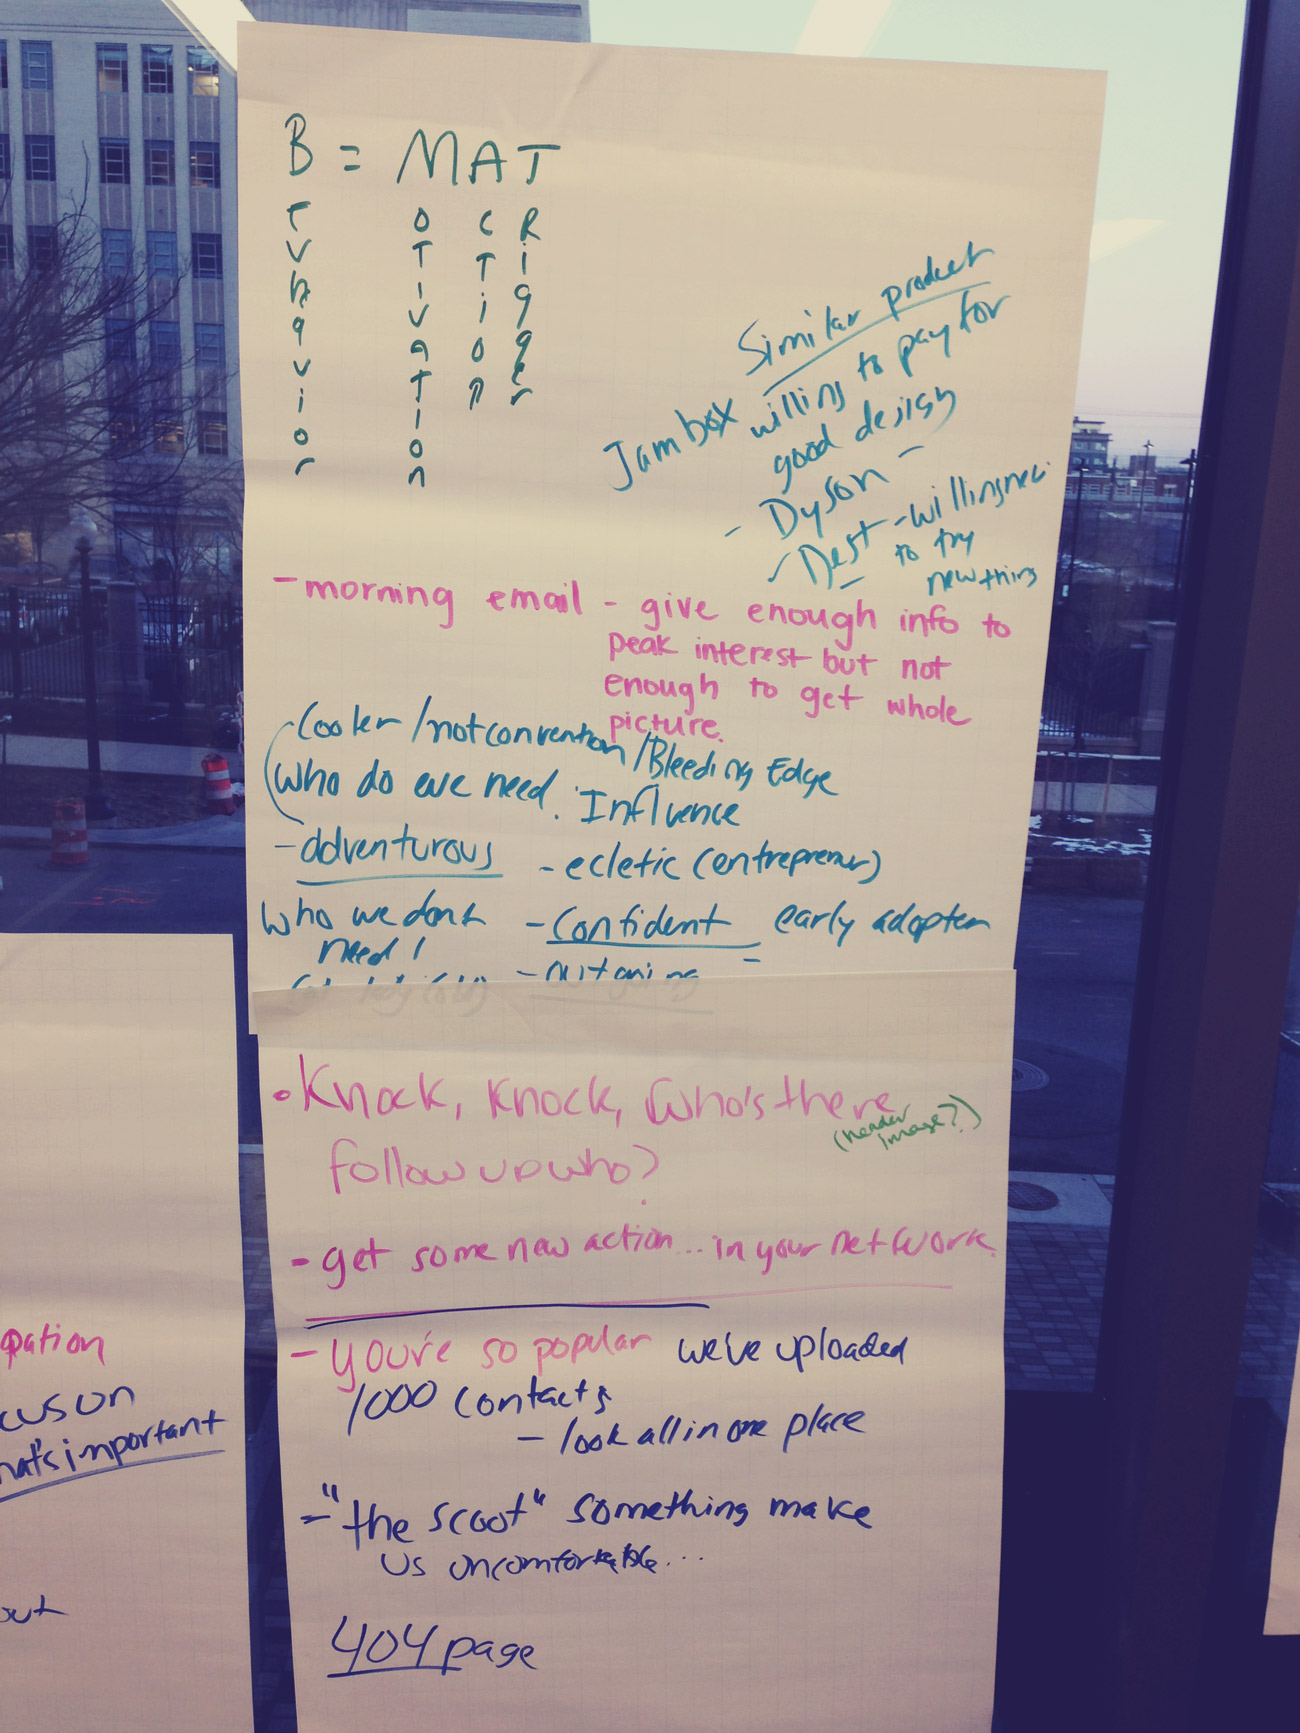 B = MAT
Behavior
Motivation
Action
Trigger
Similar product
Jambox willing to pay for
good design
- Dyson -
- Nest - willingness
to try
new thing
- morning email - give enough info to
peak interest but not
enough to get whole
picture.
Cooler / not convention / Bleeding Edge
who do we need. Influence
- adventurous
- ecletic (entreprener)
who we dont
need!
- Confident early adopter
- outgoing
• Knock, Knock, Who's there
(header
image?)
follow up who?
- get some new action... in your network.
- you're so popular we've uploaded
1000 contacts
- look all in one place
- "the scoot" something make
us uncomfortable...
404 page
pation
cus on
hat's important
out